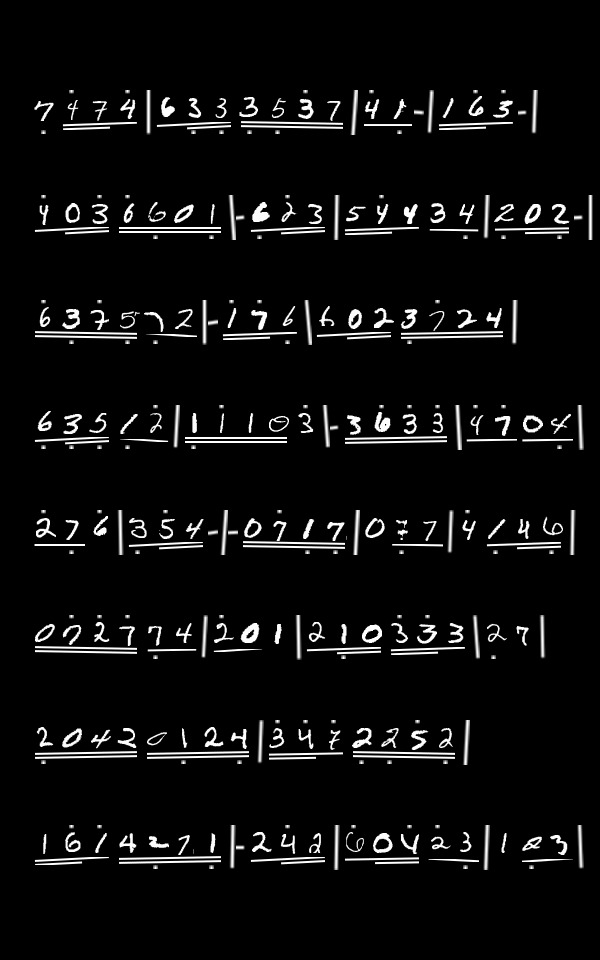 7 4 7 4 | 6 3 3 3 5 3 7 | 4 1 - | 1 6 3 - |
4 0 3 6 6 0 1 | - 6 2 3 | 5 4 4 3 4 | 2 0 2 - |
6 3 7 5 7 2 | - 1 7 6 | 6 0 2 3 7 2 4 |
6 3 5 1 2 | 1 1 1 0 3 | - 3 6 3 3 | 4 7 0 4 |
2 7 6 | 3 5 4 - | - 0 7 1 7 | 0 7 7 | 4 1 4 6 |
0 7 2 7 7 4 | 2 0 1 | 2 1 0 3 3 3 | 2 7 |
2 0 4 2 0 1 2 4 | 3 4 7 2 2 5 2 |
1 6 1 4 2 7 1 | - 2 4 2 | 6 0 4 2 3 | 1 2 3 |